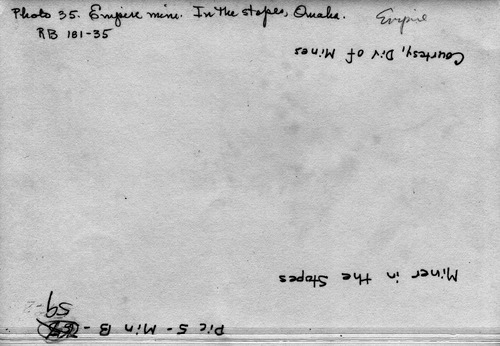 Photo 35. Empire mine. In the stopes, Omaha.
Empire
RB 181-35
Courtesy, Div of Mines
Miner in the Stopes
Pic 5 - Min B -
59